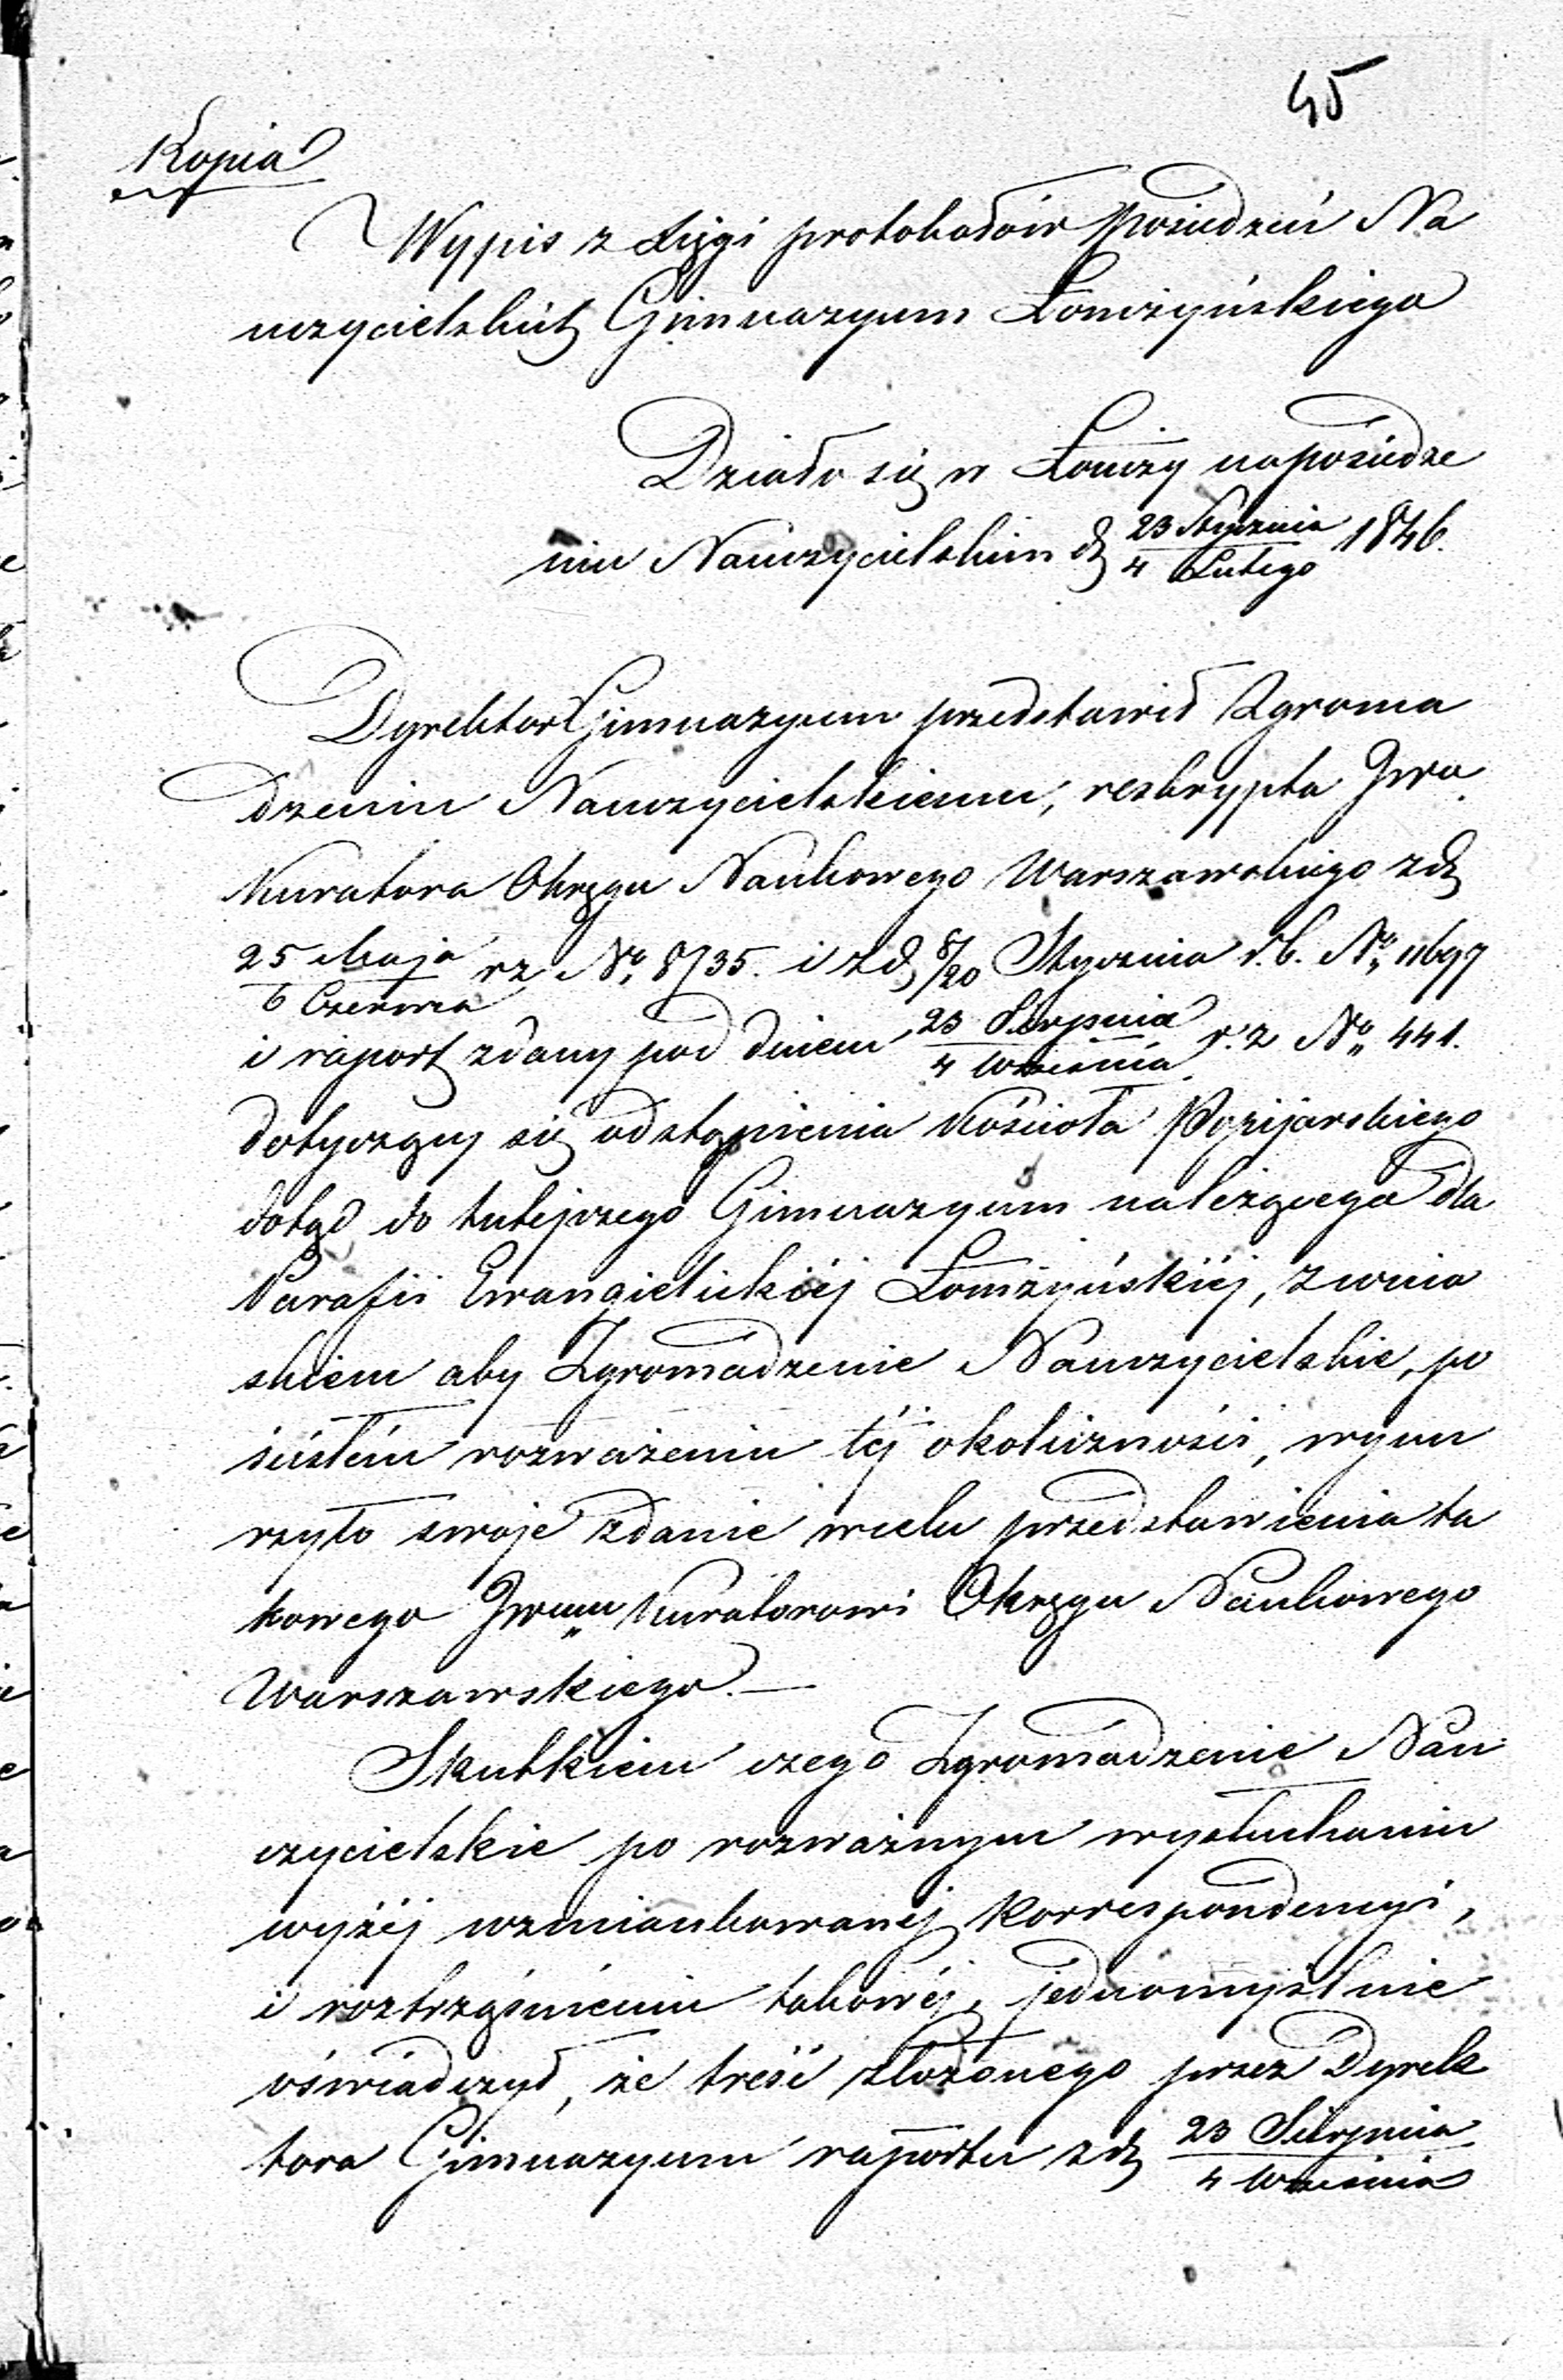 45
Kopia
Wypis z Xięgi protokołów Posiedzeń Na
uczycielskich Gimnazyum Łomżyńskiego
Działo się w Łomży na posiedze
niu Nauczycielskim d. 23 Stycznia / 4 Lutego 1846.
Dyrektor Gimnazyum przedstawił Zgroma
dzeniu Nauczycielskiemu, reskrypta JWo
Kuratora Okręgu Naukowego Warszawskiego z d.
25 Maja / 6 Czerwca r z No 8735. i z d. 8/20 Stycznia r. b. No 11697
i raport zdany pod dniem 23 Sierpnia / 4 Września r. z No 441.
dotyczący się odstąpienia Kościoła Popijarskiego
dotąd do tutejszego Gimnazyum należącego dla
Parafii Ewangielickiéj Łomżyńskiéj, z wnio
skiem aby Zgromadzenie Nauczycielskie, po
ścisłém rozważeniu téj okoliczności, wynu
rzyło swoje zdanie w celu przedstawienia ta
kowego JWmu Kuratorowi Okręgu Naukowego
Warszawskiego. —
Skutkiem czego Zgromadzenie Nau
czycielskie po rozważnym wysłuchaniu
wyżéj wzmiankowanéj korrespondencyi,
i roztrząśnieniu takowéj, jednomyślnie
oświadczył, że treść złożonego przez Dyrek
tora Gimnazyum raportu z d. 23 Sierpnia / 4 Września